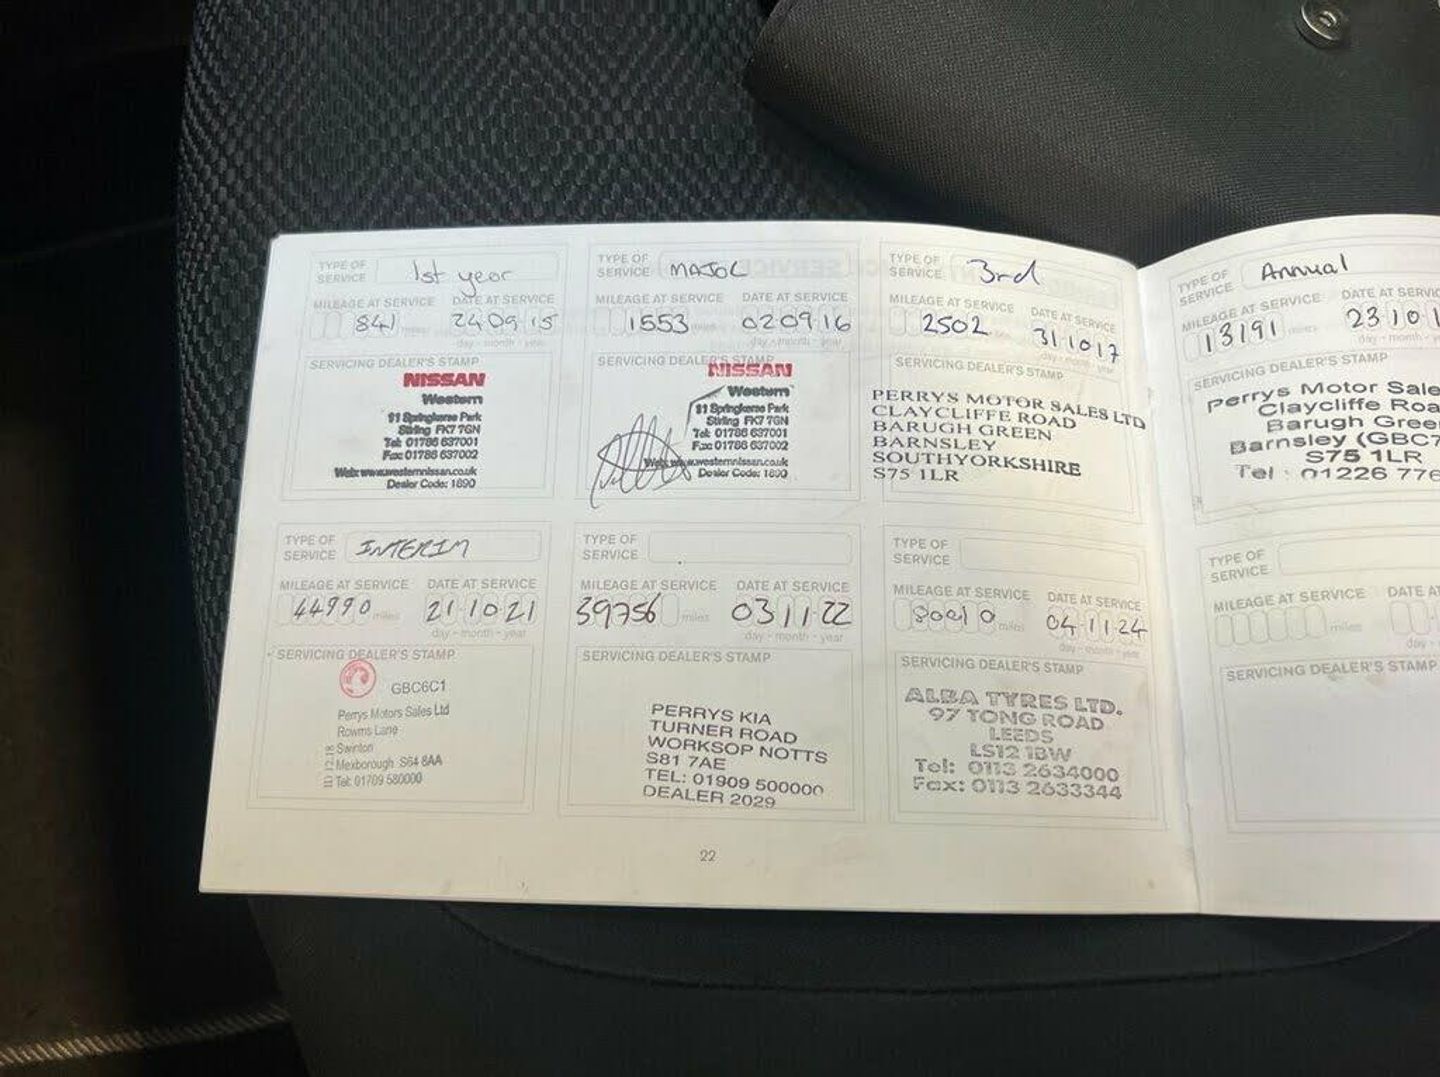 TYPE OF SERVICE 1st year
MILEAGE AT SERVICE DATE AT SERVICE
841 miles 24 09 15
day - month - year
SERVICING DEALER'S STAMP
NISSAN
Western
91 Springkerse Park
Stirling FK7 7GN
Tel: 01786 637001
Fax: 01786 637002
Web: www.westernnissan.co.uk
Dealer Code: 1890
TYPE OF SERVICE MAJOR
MILEAGE AT SERVICE DATE AT SERVICE
1553 miles 02 09 16
day - month - year
SERVICING DEALER'S STAMP
NISSAN
Western
91 Springkerse Park
Stirling FK7 7GN
Tel: 01786 637001
Fax: 01786 637002
Web: www.westernnissan.co.uk
Dealer Code: 1890
TYPE OF SERVICE 3rd
MILEAGE AT SERVICE DATE AT SERVICE
2502 miles 31 10 17
day - month - year
SERVICING DEALER'S STAMP
PERRYS MOTOR SALES LTD
CLAYCLIFFE ROAD
BARUGH GREEN
BARNSLEY
SOUTHYORKSHIRE
S75 1LR
TYPE OF SERVICE Annual
MILEAGE AT SERVICE DATE AT SERVIC
13191 miles 23 10 1
SERVICING DEALER'S STAMP
Perrys Motor Sale
Claycliffe Roa
Barugh Gree
Barnsley (GBC7
S75 1LR
Tel : 01226 776
TYPE OF SERVICE INTERIM
MILEAGE AT SERVICE DATE AT SERVICE
44990 miles 21 10 21
day - month - year
SERVICING DEALER'S STAMP
GBC6C1
Perrys Motors Sales Ltd
Rowms Lane
Swinton
Mexborough S64 8AA
Tel: 01709 580000
TYPE OF SERVICE
MILEAGE AT SERVICE DATE AT SERVICE
59756 miles 03 11 22
day - month - year
SERVICING DEALER'S STAMP
PERRYS KIA
TURNER ROAD
WORKSOP NOTTS
S81 7AE
TEL: 01909 500000
DEALER 2029
TYPE OF SERVICE
MILEAGE AT SERVICE DATE AT SERVICE
miles 04 11 24
day - month - year
SERVICING DEALER'S STAMP
ALBA TYRES LTD.
97 TONG ROAD
LEEDS
LS12 1BW
Tel: 0113 2634000
Fax: 0113 2633344
TYPE OF SERVICE
MILEAGE AT SERVICE DATE AT
miles day -
SERVICING DEALER'S STAMP
22